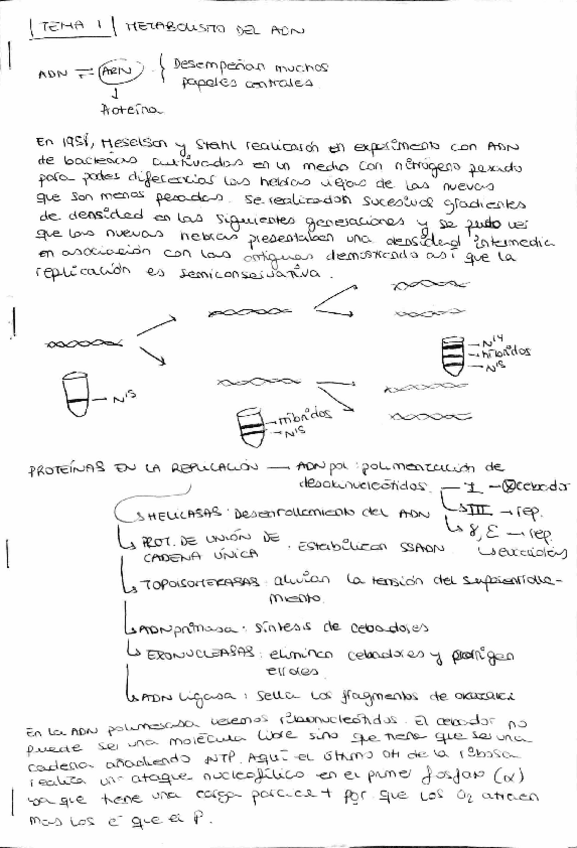 TEMA 1 METABOLISMO DEL ADN
ADN ⇌ ARN { Desempeñan muchos
papeles controles
↓
Proteína
En 1958, Meselson y Stahl realizaron en experimento con ADN
de bacterias cultivadas en un medio con nitrógeno pesado
para poder diferenciar las hebras viejas de las nuevas
que son menos pesadas. Se realizaron sucesivos gradientes
de densidad en las siguientes generaciones y se pudo ver
que las nuevas hebras presentaban una densidad intermedia
en asociación con las antiguas demostrando así que la
replicación es semiconservativa.
N14
híbridos
N15
N15
híbridos
N15
PROTEÍNAS EN LA REPLICACIÓN — ADN pol: polimerización de
desoxinucleótidos. I → cebador
HELICASAS: Desenrollamiento del ADN III → rep.
PROT. DE UNIÓN DE
CADENA ÚNICA . Estabilizan SSADN. → rep.
escisión
TOPOISOMERASAS: alivian la tensión del superenrolla-
miento.
ADN primasa: síntesis de cebadores
EXONUCLEASAS: eliminan cebadores y corrigen
errores.
ADN ligasa: sella los fragmentos de okazaki
En la ADN polimerasa vemos ribonucleótidos. El cebador no
puede ser una molécula libre sino que tiene que ser una
cadena añadiendo NTP. Aquí el último OH de la ribosa
realiza un ataque nucleofílico en el primer fosfato (α)
ya que tiene una carga parcial + por que los O2 atraen
mas los e- que el P.